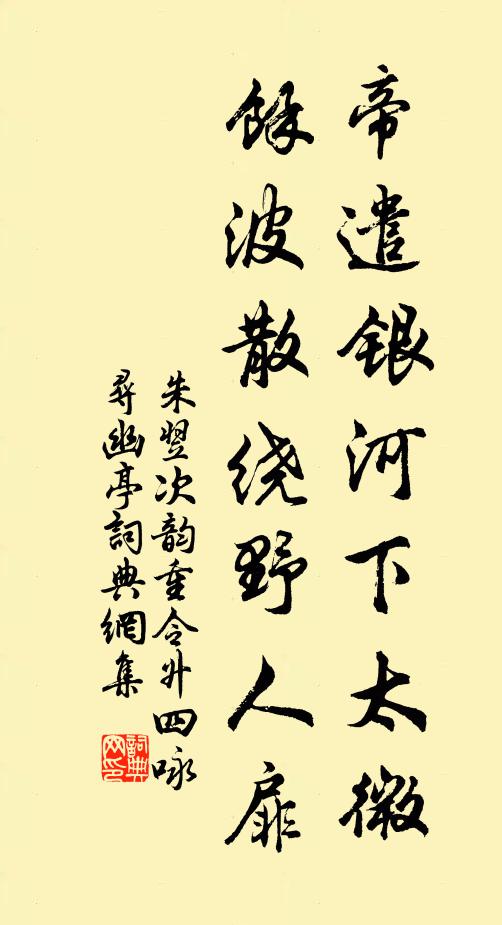 帝遣銀河下太微
餘波散绕野人扉
朱翌次韵董令升四咏
尋幽亭詞典網集
詞典网印